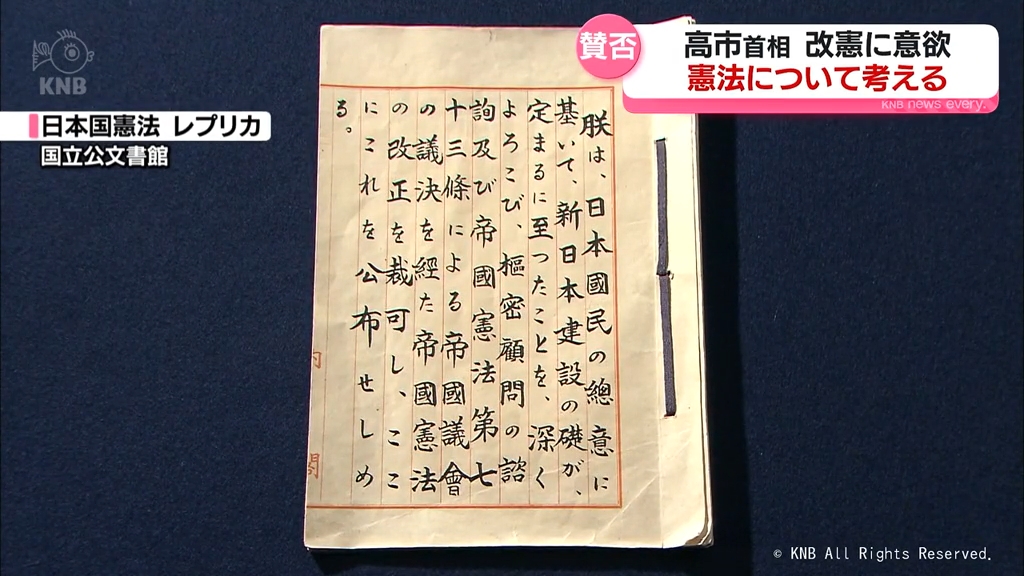 KNB
賛否
高市首相 改憲に意欲
憲法について考える
KNB news every.
日本国憲法 レプリカ
国立公文書館
朕は、日本國民の總意に
基いて、新日本建設の礎が、
定まるに至つたことを、深く
よろこび、樞密顧問の諮
詢及び帝國憲法第七
十三條による帝國議會
の議決を經た帝國憲法
の改正を裁可し、ここ
にこれを公布せしめ
る。
内
閣
© KNB All Rights Reserved.